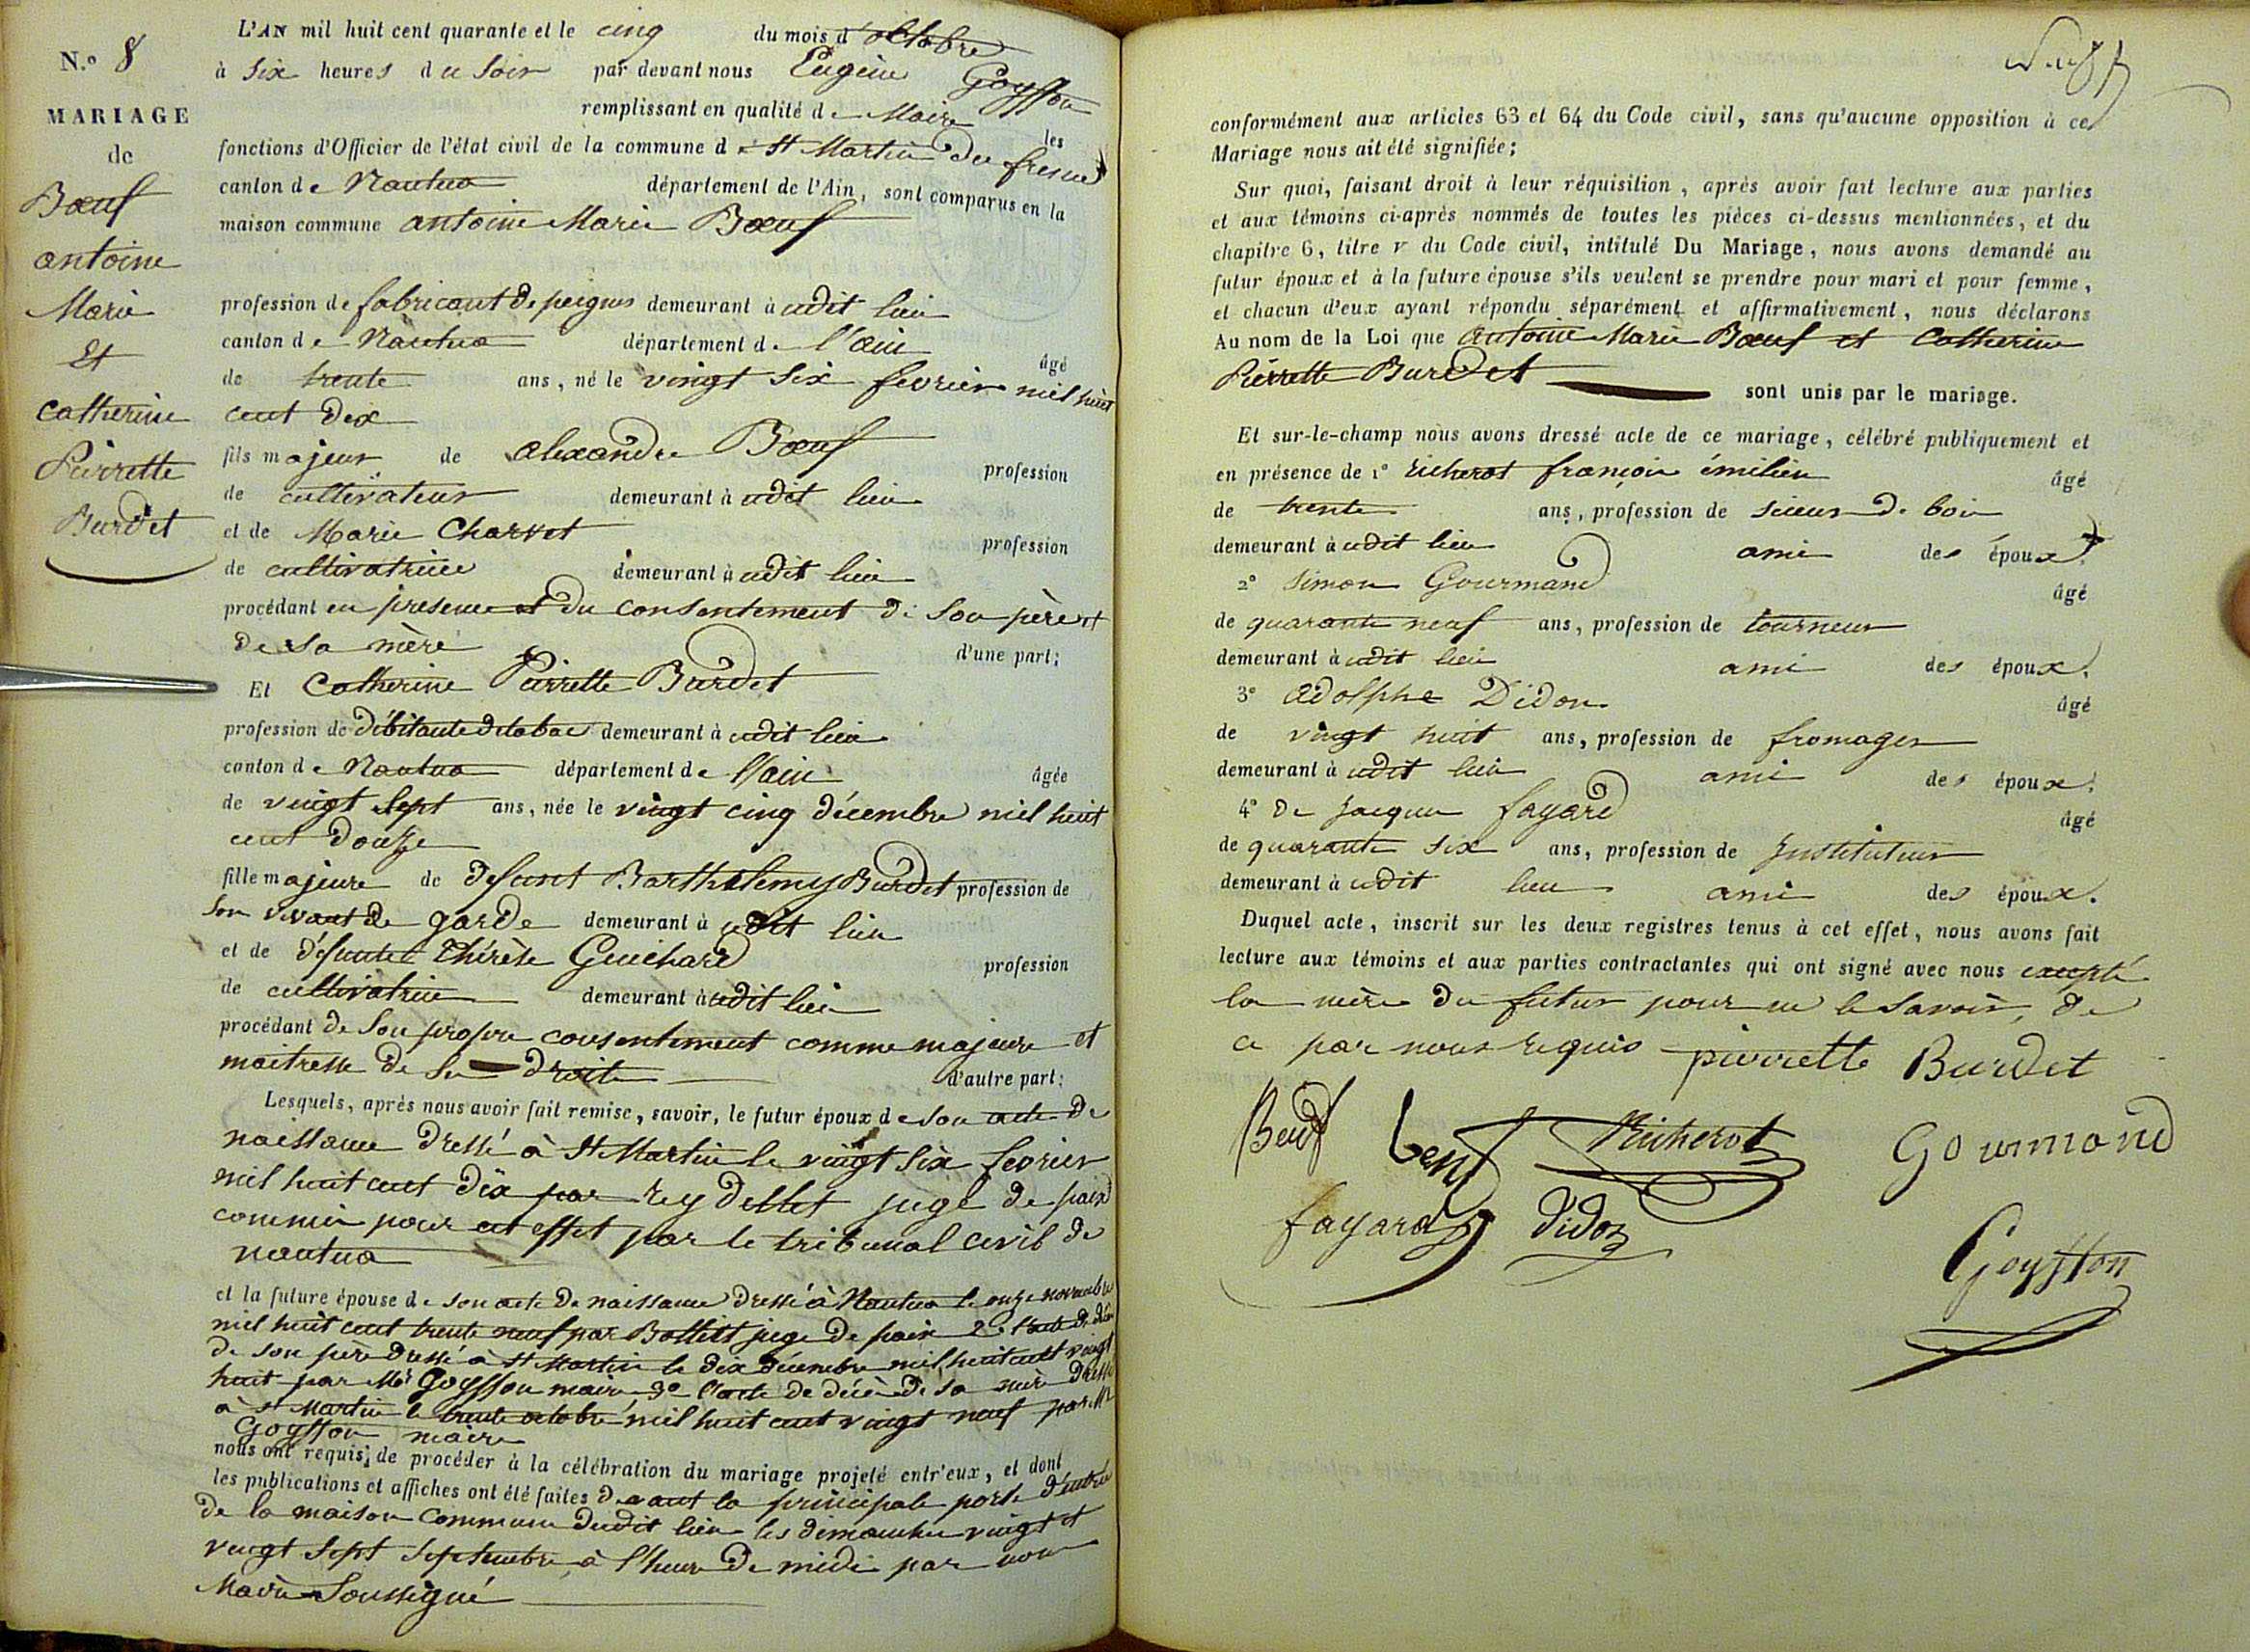 N.º 8
MARIAGE
de
Bœuf
antoine
Marie
Et
Catherine
Pierrette
Burdet
L'AN mil huit cent quarante et le cinq du mois d'octobre
à six heures du soir par devant nous Eugène Goyffon
remplissant en qualité de Maire les
fonctions d'Officier de l'état civil de la commune de St Martin du fresne
canton de Nantua département de l'Ain, sont comparus en la
maison commune antoine Marie Bœuf
profession de fabricant de peignes demeurant à udit lieu
canton de Nantua département de l'ain âgé
de trente ans, né le vingt six fevrier mil huit
cent dix
fils majeur de alexandre Bœuf profession
de cultivateur demeurant à udit lieu
et de Marie Charvet profession
de cultivatrice demeurant à udit lieu
procédant en presence et du consentement de son père et
de sa mère d'une part;
Et Catherine Pierrette Burdet
profession de débitante de tabac demeurant à udit lieu
canton de Nantua département de l'ain âgée
de vingt sept ans, née le vingt cinq décembre mil huit
cent douze
fille majeure de defunt Barthelemy Burdet profession de
son vivant de garde demeurant à udit lieu
et de défunte Thérèse Guichard profession
de cultivatrice demeurant à udit lieu
procédant de son propre consentement comme majeure et
maitresse de ses droits d'autre part;
Lesquels, après nous avoir fait remise, savoir, le futur époux de son acte de
naissance dressé à St Martin le vingt six fevrier
mil huit cent dix par reydellet juge de paix
commis pour cet effet par le tribunal civil de
nantua
et la future épouse de son acte de naissance dressé à Nantua le onze novembre
mil huit cent trente neuf par Bollitt juge de paix 2º l'acte de décès
de son père dressé à St Martin le dix décembre mil huit cent vingt
huit par Mr Goyffon maire 3º l'acte de décès de sa mère dressé
à St Martin le trente octobre mil huit cent vingt neuf par Mr
Goyffon maire
nous ont requis de procéder à la célébration du mariage projeté entr'eux, et dont
les publications et affiches ont été faites devant la principale porte d'entrée
de la maison commune dudit lieu les dimanches vingt et
vingt sept septembre à l'heure de midi par nous
Maire Soussigné
conformément aux articles 63 et 64 du Code civil, sans qu'aucune opposition à ce
Mariage nous ait été signifiée;
Sur quoi, faisant droit à leur réquisition, après avoir fait lecture aux parties
et aux témoins ci-après nommés de toutes les pièces ci-dessus mentionnées, et du
chapitre 6, titre v du Code civil, intitulé Du Mariage, nous avons demandé au
futur époux et à la future épouse s'ils veulent se prendre pour mari et pour femme,
et chacun d'eux ayant répondu séparément et affirmativement, nous déclarons
Au nom de la Loi que antoine Marie Bœuf et Catherine
Pierrette Burdet sont unis par le mariage.
Et sur-le-champ nous avons dressé acte de ce mariage, célébré publiquement et
en présence de 1º richerot françois émilien âgé
de trente ans, profession de scieur de bois
demeurant à udit lieu ami des époux.
2º simon Gourmand âgé
de quarante neuf ans, profession de tourneur
demeurant à udit lieu ami des époux.
3º adolphe Didon âgé
de vingt huit ans, profession de fromager
demeurant à udit lieu ami des époux.
4º De Jacques fayard âgé
de quarante six ans, profession de Instituteur
demeurant à udit lieu ami des époux.
Duquel acte, inscrit sur les deux registres tenus à cet effet, nous avons fait
lecture aux témoins et aux parties contractantes qui ont signé avec nous excepté
la mère du futur pour ne le savoir, de
ce par nous requis pierrette Burdet
Beuf beuf Richerot Gourmand
fayard didon
Goyffon